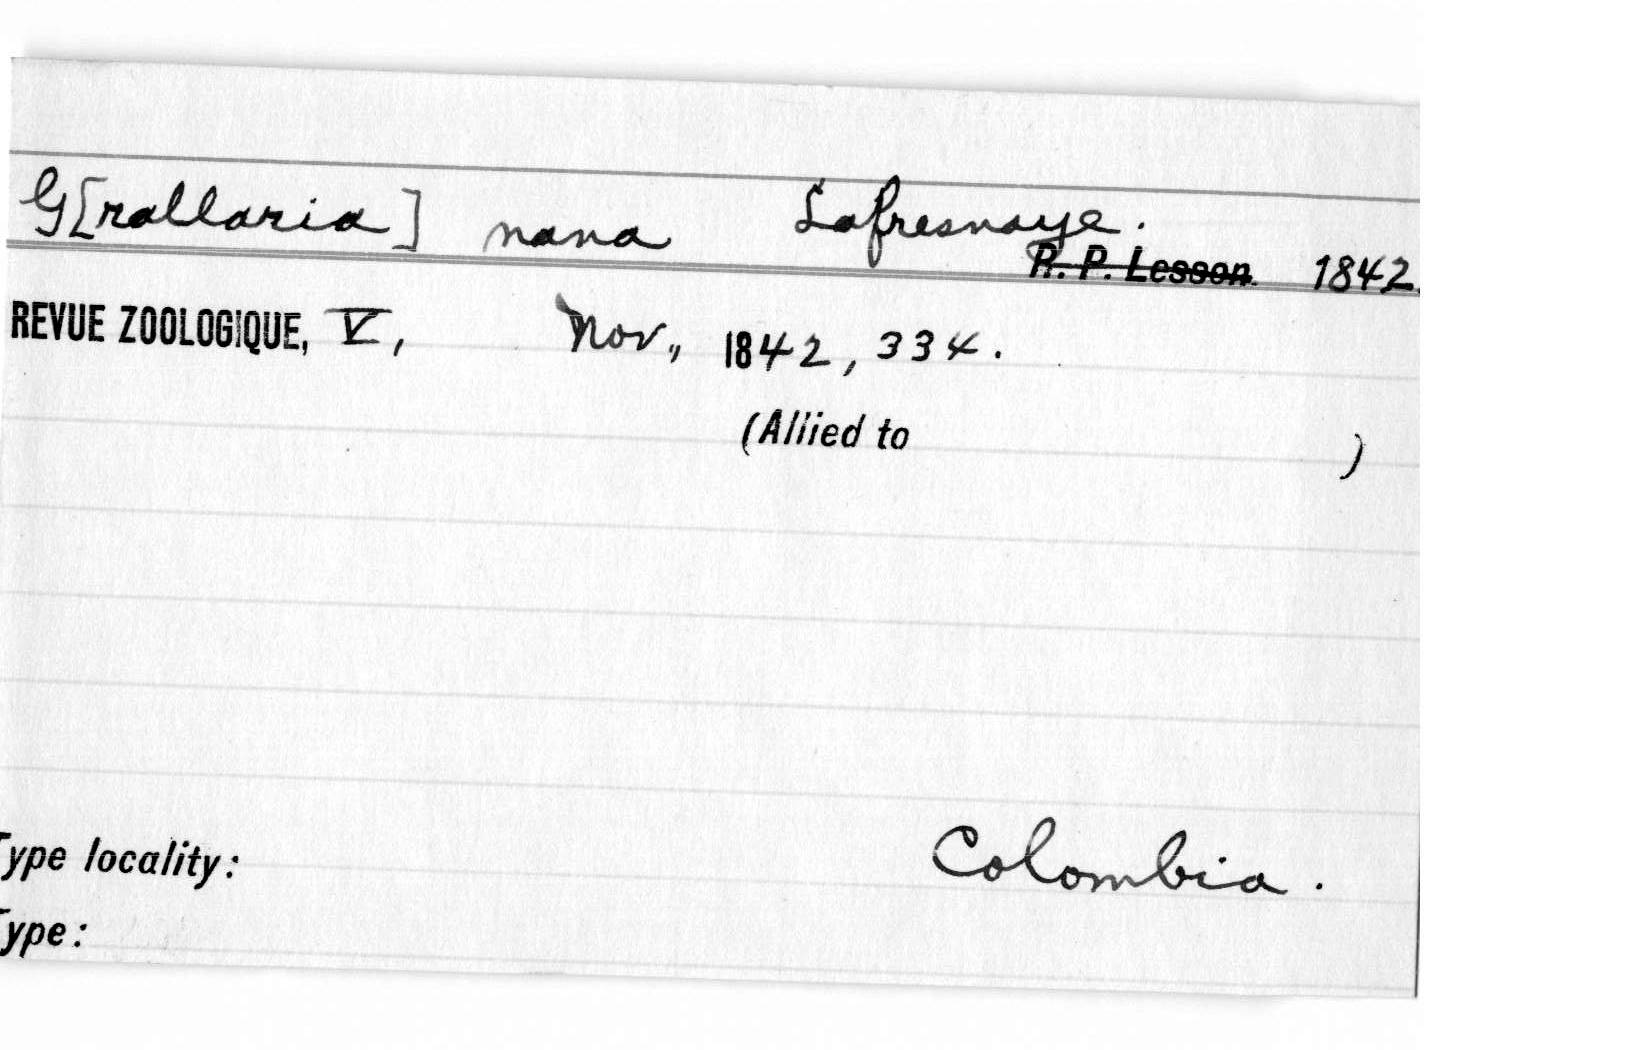 G[rallaria] nana Lafresnaye.
R. P. Lesson. 1842.
REVUE ZOOLOGIQUE, V, Nov., 1842, 334.
(Allied to )
Type locality: Colombia.
Type: